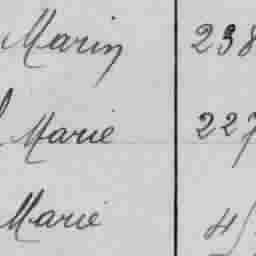 Marin 238
Marie 227
Marie 45